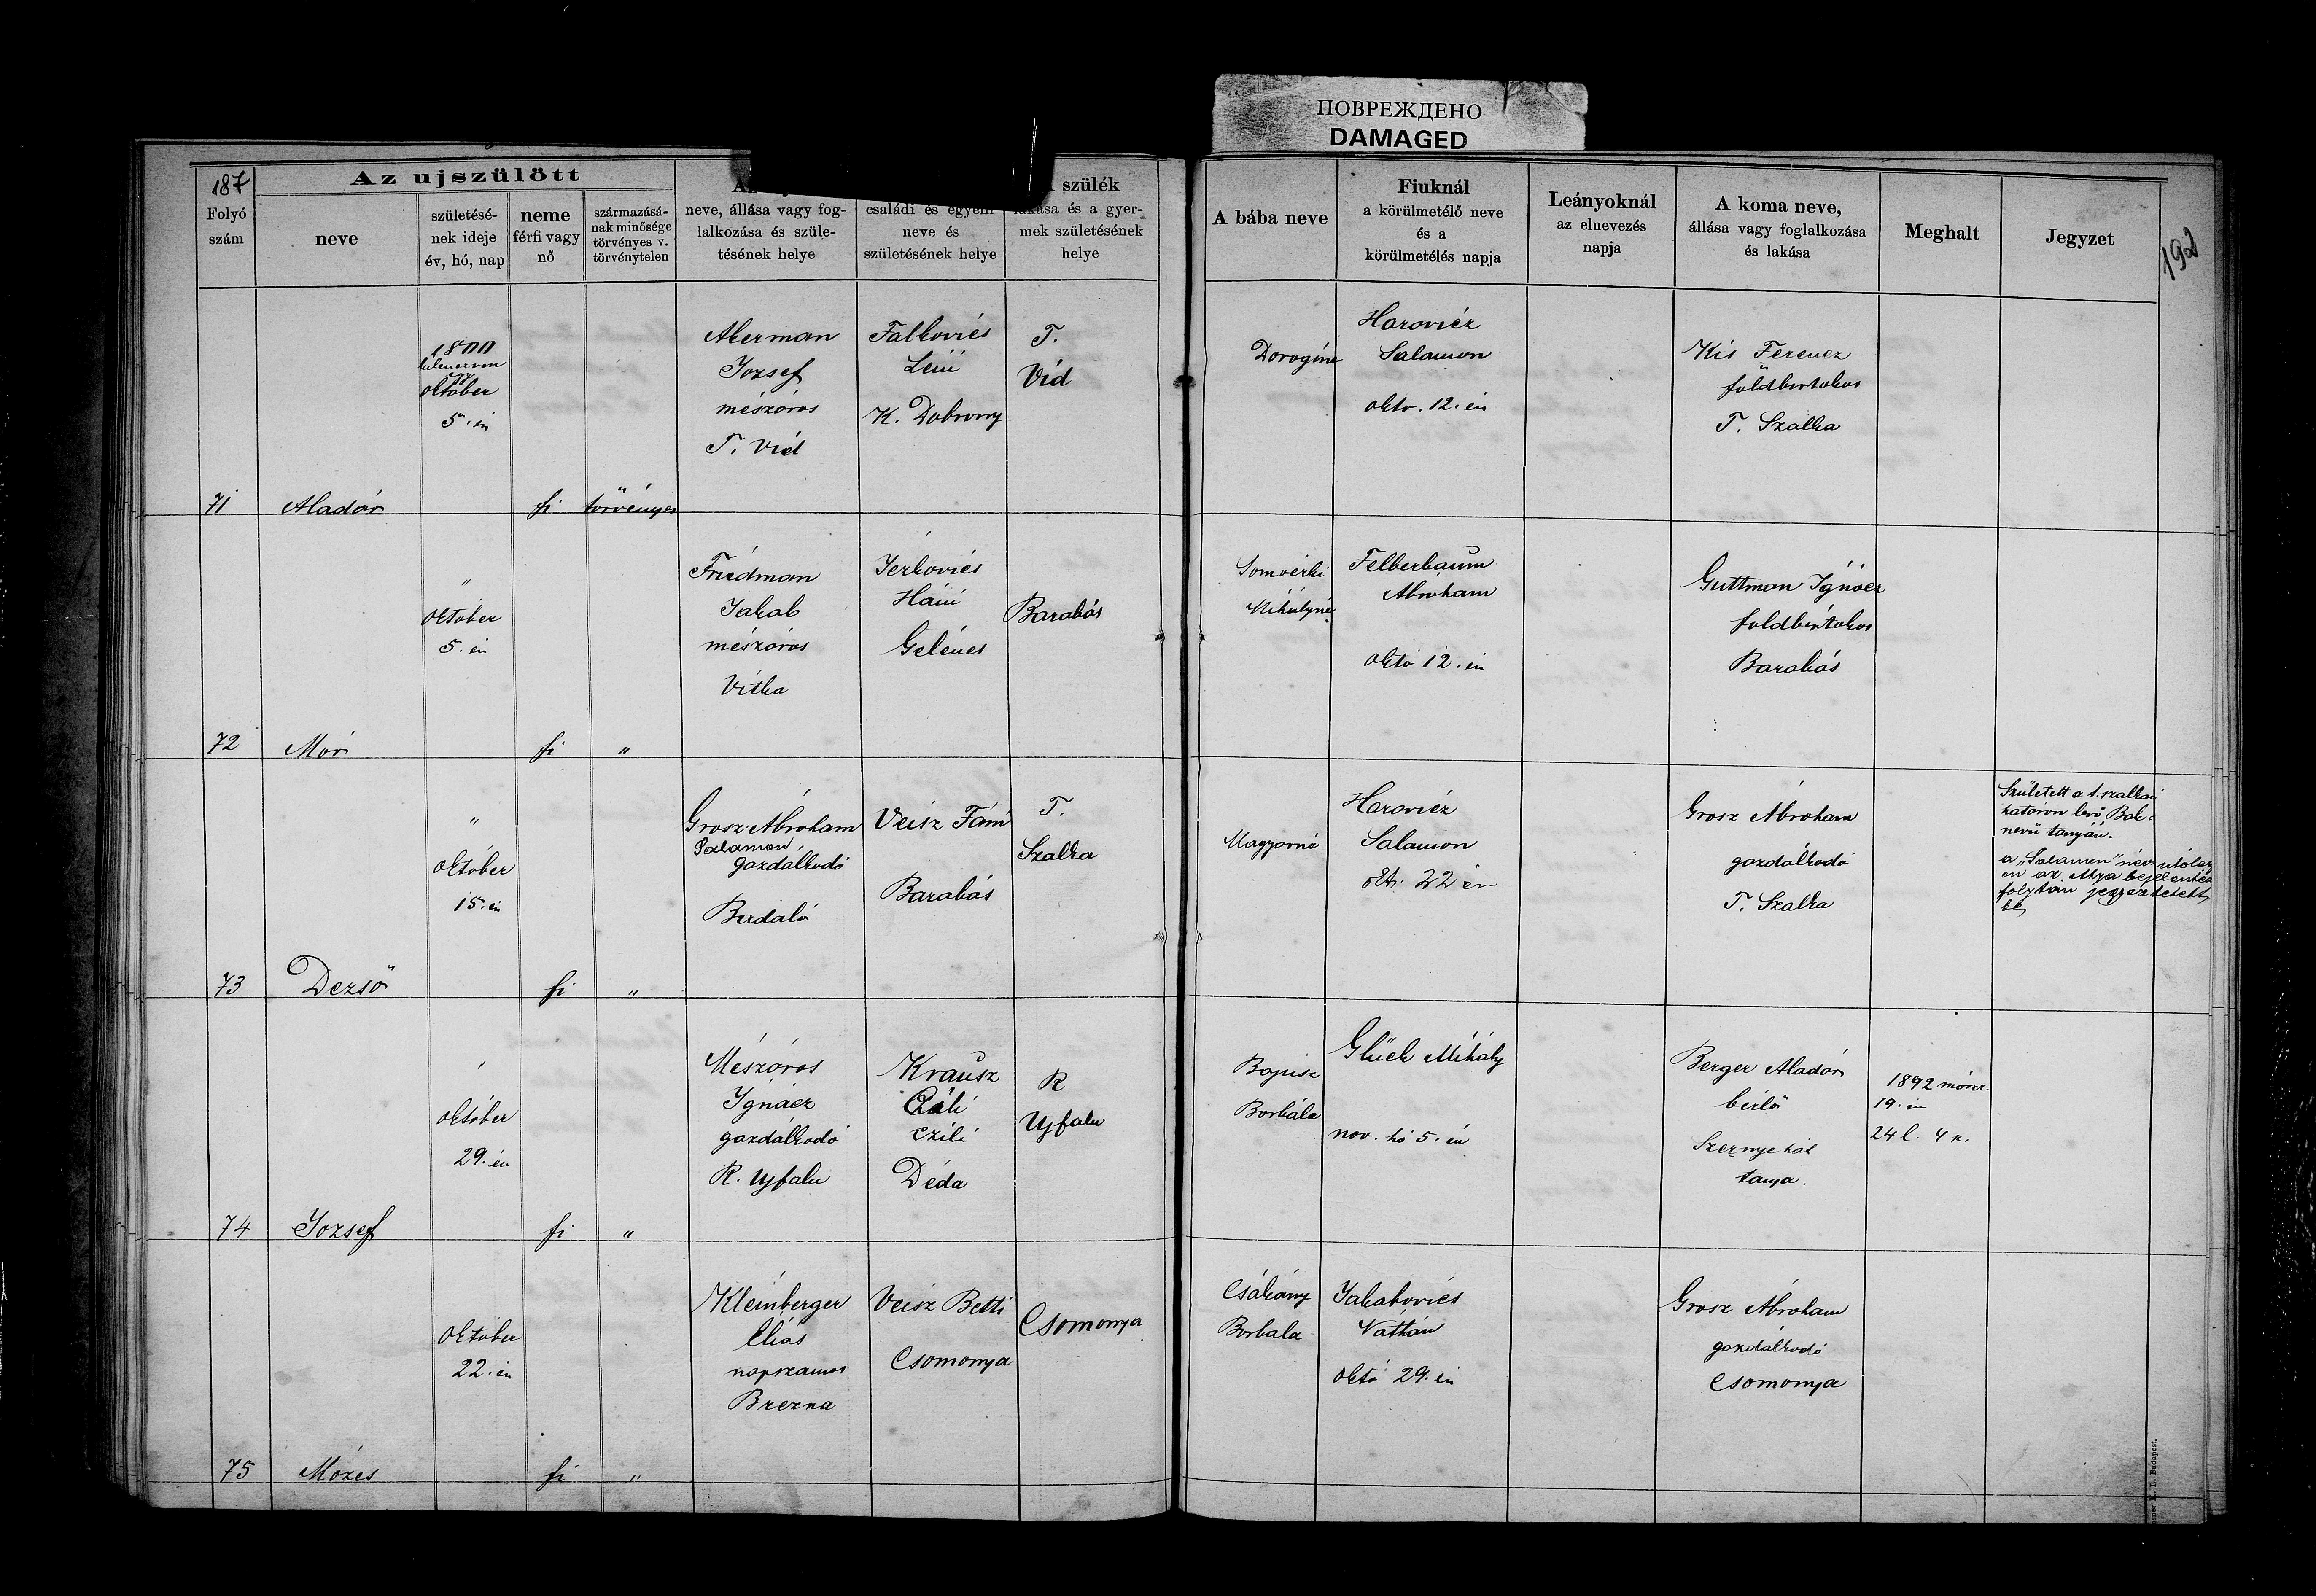 ПОВРЕЖДЕНО
DAMAGED
187
Az ujszülött
Folyó
szám
neve
születésé-
nek ideje
év, hó, nap
neme
férfi vagy
nő
származásá-
nak minősége
törvényes v.
törvénytelen
neve, állása vagy fog-
lalkozása és szüle-
tésének helye
családi és egyéni
neve és
születésének helye
szülék
lakása és a gyer-
mek születésének
helye
A bába neve
Fiuknál
a körülmetélő neve
és a
körülmetélés napja
Leányoknál
az elnevezés
napja
A koma neve,
állása vagy foglalkozása
és lakása
Meghalt
Jegyzet
192
71
Aladár
október
5. én
fi
törvényes
Akerman
Jozsef
mészáros
T. Vid
Falkovics
Léni
K. Dobrony
T.
Vid
Doroginé
Harovicz
Salamon
okto. 12. én
Kis Ferencz
földbirtokos
T. Szalka
72
Mór
"
október
5. én
fi
"
Friedman
Jakab
mészáros
Vitka
Jerkovics
Háni
Gelénes
Barabás
Somvérki
Mihályné
Felberbaum
Ábrahám
okto 12. én
Guttman Ignácz
foldbirtokos
Barabás
73
Dezső
"
október
15. én
fi
"
Grosz Ábraham
Salamon
gazdálkodó
Badaló
Veisz Fáni
Barabás
T.
Szalka
Magyarné
Harovicz
Salamon
okt. 22 én
Grosz Ábraham
gazdálkodó
T. Szalka
Született a t. szalkai
határon levő Bak
nevü tanyán.
a „Salamon" név utólag
on az atya bejelentése
folytán jegyeztetett
be
74
Jozsef
"
október
29. én
fi
"
Mészáros
Ignácz
gazdálkodó
R. Ujfalu
Krausz
Czili
Déda
R
Ujfalu
Bojtisz
Borbála
Glück Mihály
nov. hó 5. én
Berger Aladár
bérlő
Szernye hát
tanya.
1892 márcz.
19. én
24 l. 4 sz.
75
Mózes
október
22. én
fi
"
Kleinberger
Éliás
napszamos
Brezna
Veisz Betti
Csomonya
Csomonya
Csákány
Borbala
Jakabovics
Náthán
októ 29. én
Grosz Ábraham
gazdálkodó
Csomonya
K. L. Budapest.